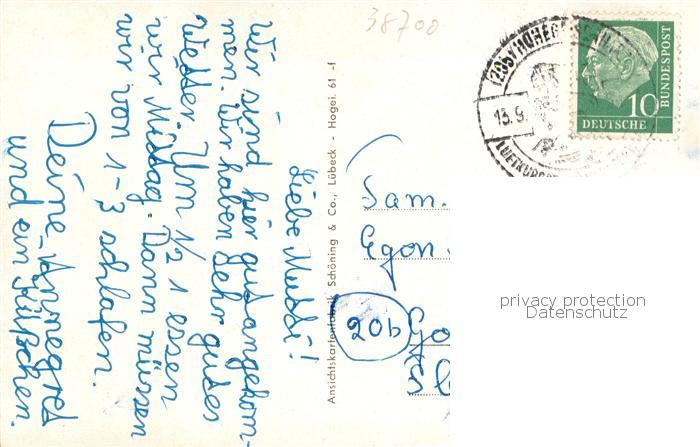 38700
Liebe Mutti!
Wir sind hier gut angekom-
men. Wir haben sehr gutes
Wetter. Um 1/2 1 essen
wir Mittag. Dann müssen
wir von 1-3 schlafen.
Deine Annegret
und ein Küßchen.
Ansichtskartenfabrik Schöning & Co., Lübeck - Hogei. 61 -f
(20b) HOHEGEISS
13.9.
LUFTKURORT
10
DEUTSCHE
BUNDESPOST
Fam.
Egon
20b
privacy protection
Datenschutz